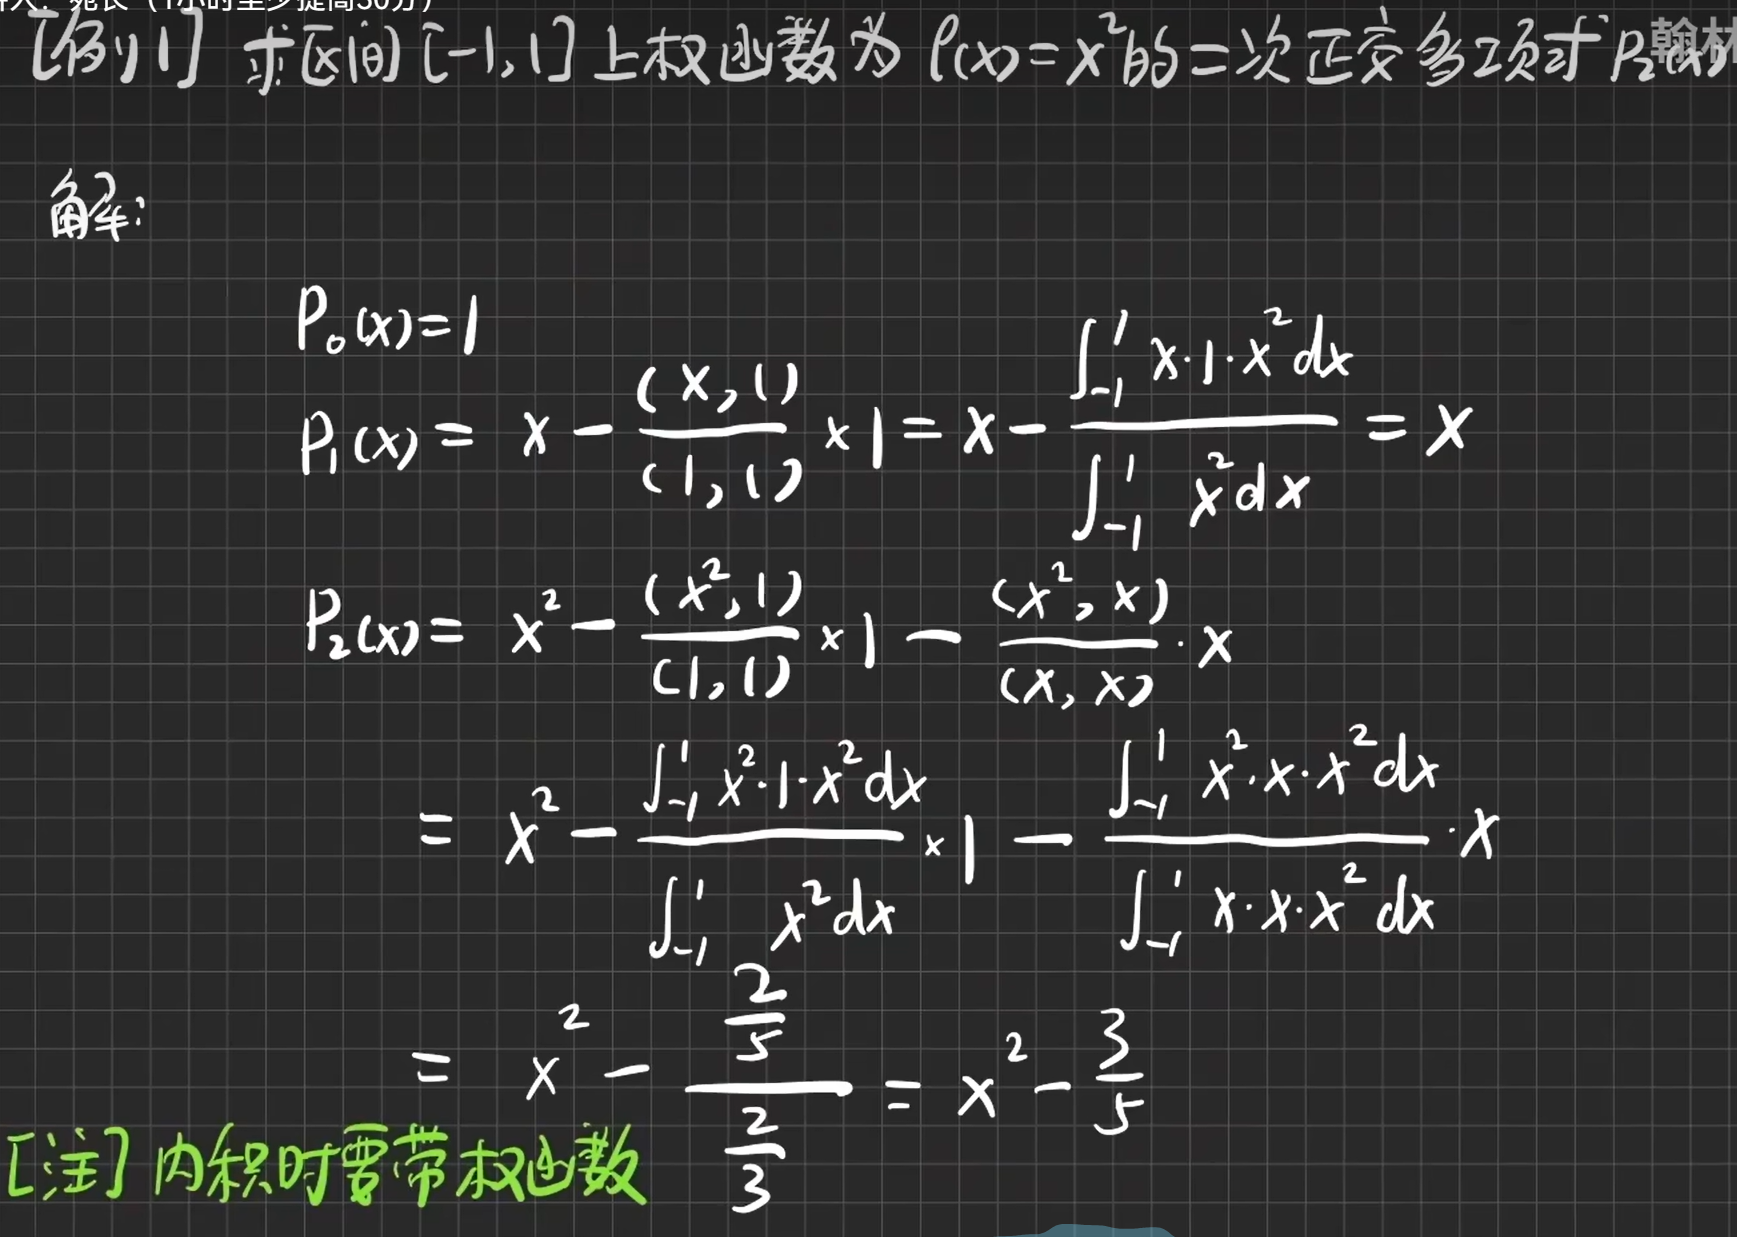 宛长（1小时至少提高30分）
[例1] 求区间[-1,1]上权函数为 ρ(x)=x²的二次正交多项式 P₂(x)
翰林
解:
P₀(x)=1
P₁(x)= x - (x,1)/(1,1) ×1 = x - ∫₋₁¹ x·1·x²dx / ∫₋₁¹ x²dx = x
P₂(x)= x² - (x²,1)/(1,1) ×1 - (x²,x)/(x,x) ·x
= x² - ∫₋₁¹ x²·1·x²dx / ∫₋₁¹ x²dx ×1 - ∫₋₁¹ x²·x·x²dx / ∫₋₁¹ x·x·x²dx ·x
= x² - (2/5)/(2/3) = x² - 3/5
[注] 内积时要带权函数